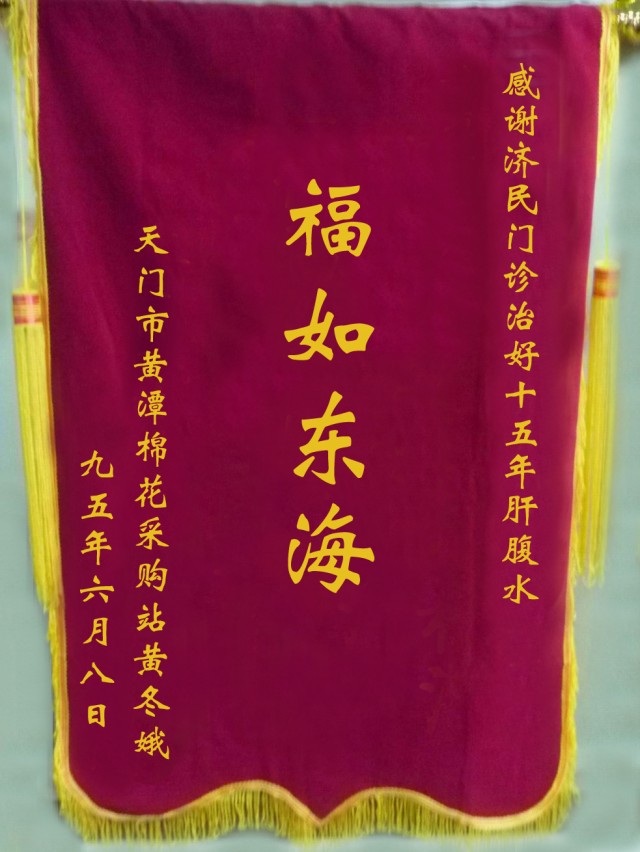 感谢济民门诊治好十五年肝腹水
福如东海
天门市黄潭棉花采购站黄冬娥
九五年六月八日